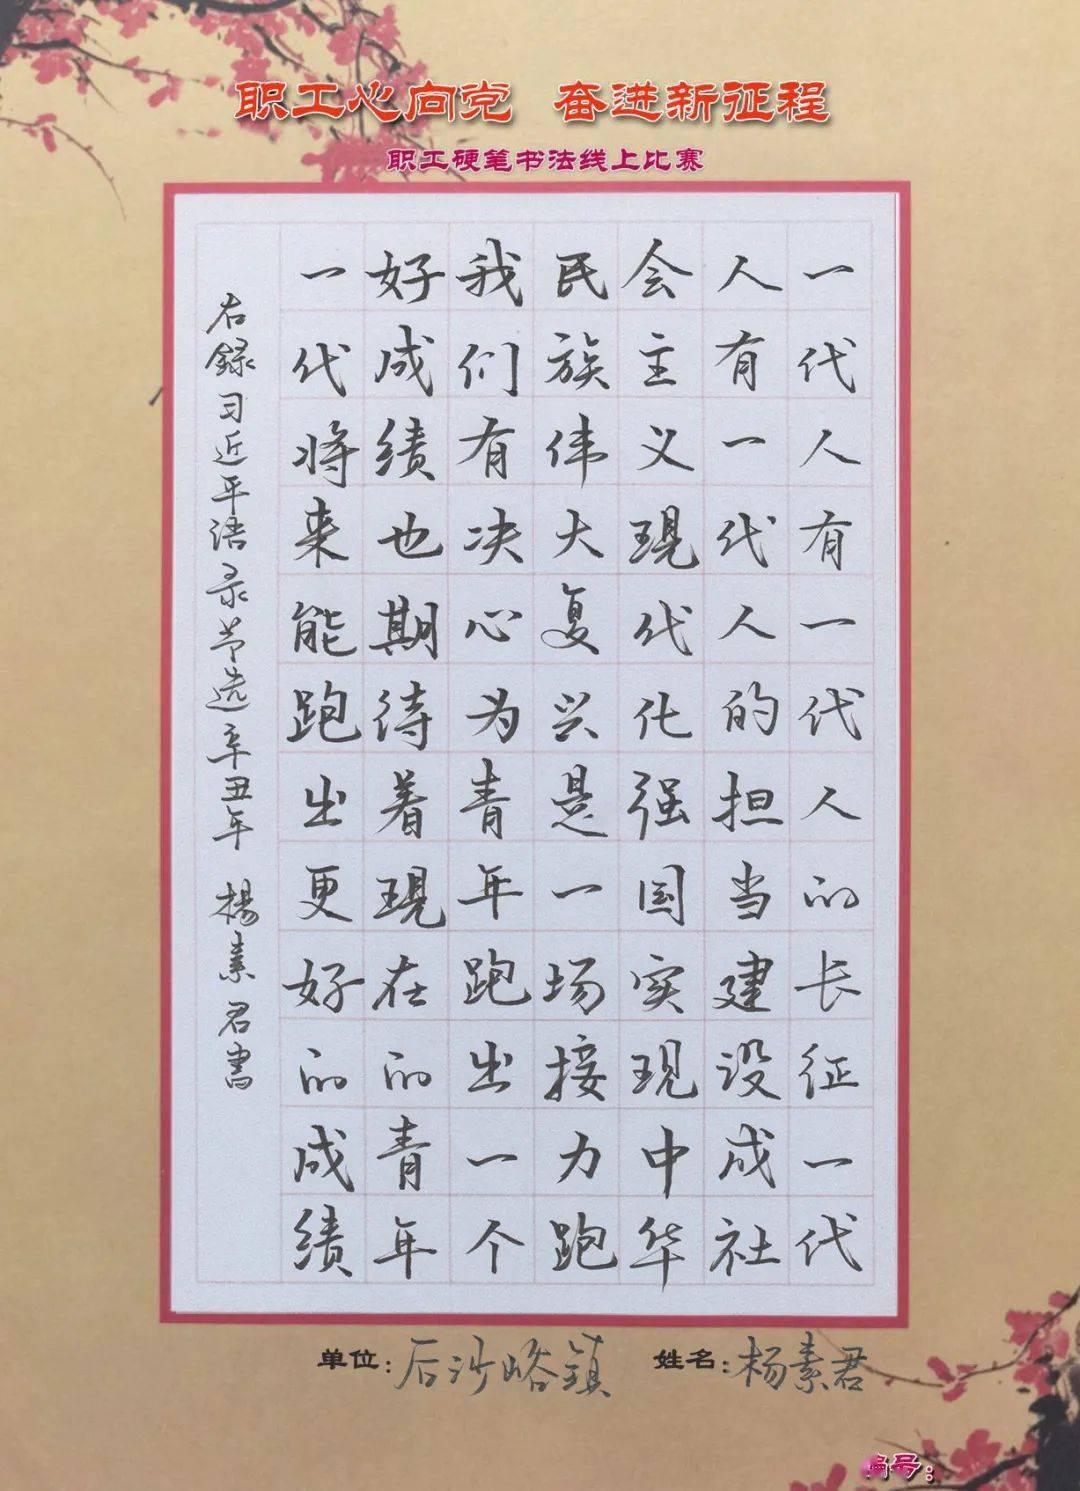 职工心向党 奋进新征程
职工硬笔书法线上比赛
一代人有一代人的长征一代
人有一代人的担当建设成社
会主义现代化强国实现中华
民族伟大复兴是一场接力跑
我们有决心为青年跑出一个
好成绩也期待着现在的青年
一代将来能跑出更好的成绩
右録习近平语录节选辛丑年 楊素君書
单位:后沙峪镇 姓名:杨素君
编号: